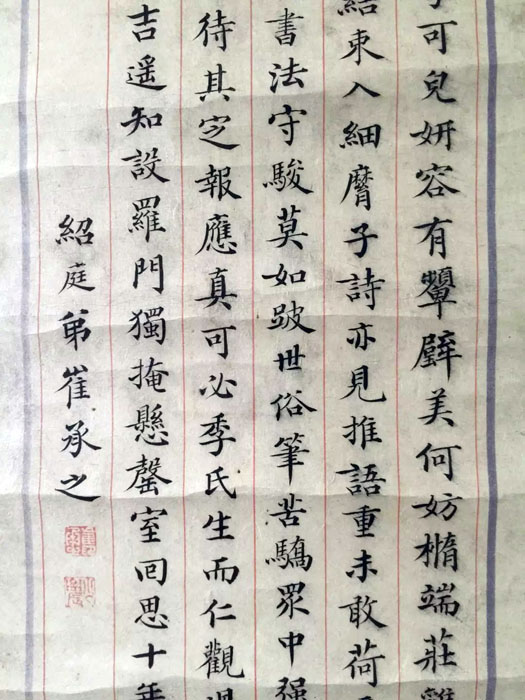 可兒妍容有顰璧美何妨橢端莊
結束入細麼子詩亦見推語重未敢荷
書法守駿莫如跛世俗筆苦驕眾中强
待其定報應真可必季氏生而仁觀
吉遥知設羅門獨掩懸罄室回思十年
紹庭弟崔承之